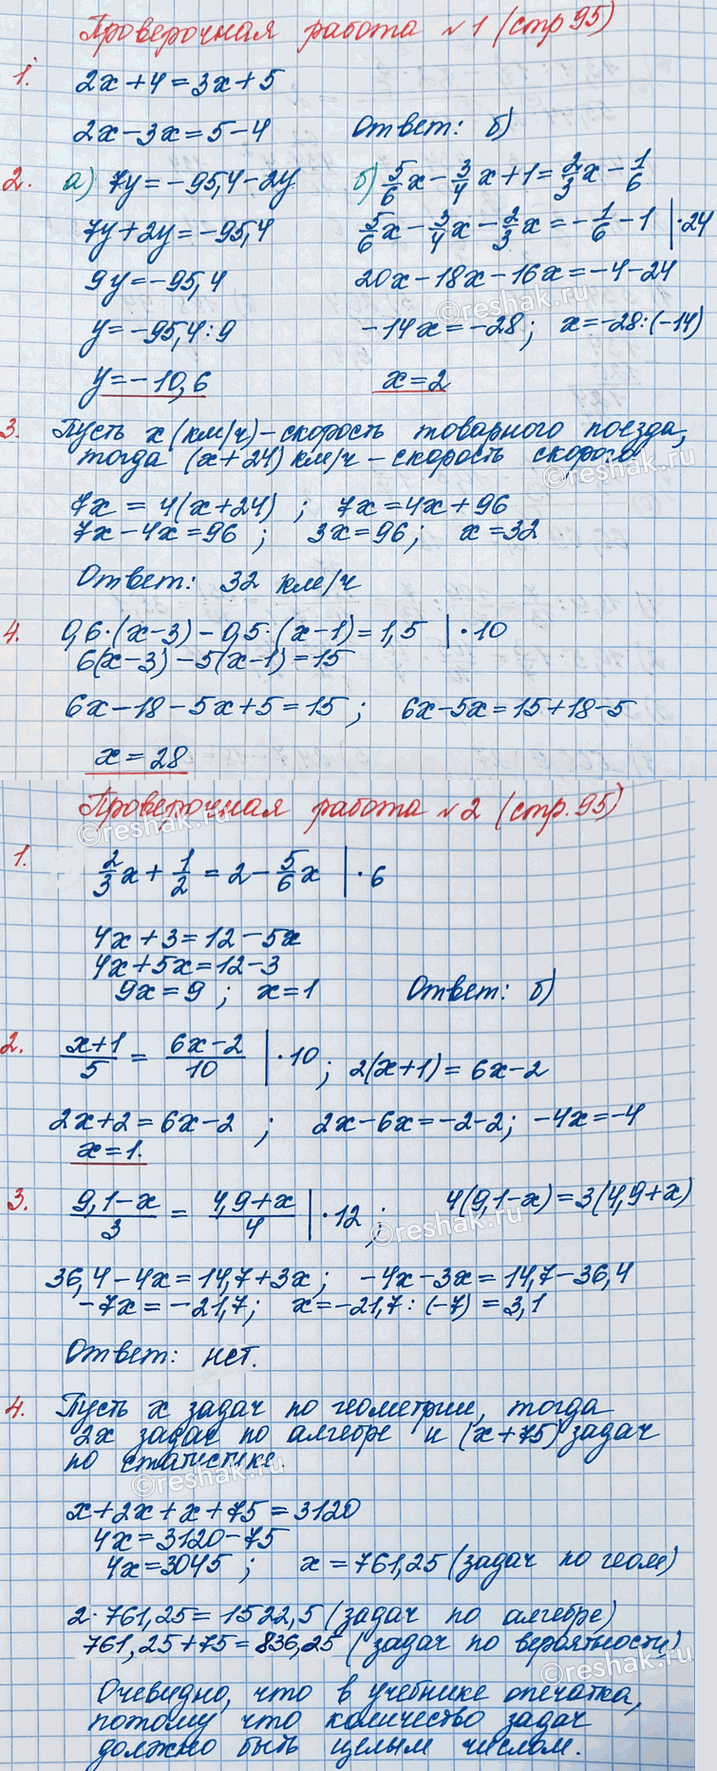 Проверочная работа №1 (стр 95)
1. 2x+4=3x+5
2x-3x=5-4 Ответ: б)
2. а) 7y=-95,4-2y б) 5/6x-3/4x+1=2/3x-1/6
7y+2y=-95,4 5/6x-3/4x-2/3x=-1/6-1 |·24
9y=-95,4 20x-18x-16x=-4-24
y=-95,4:9 -14x=-28; x=-28:(-14)
y=-10,6 x=2
3. Пусть x (км/ч)-скорость товарного поезда,
тогда (x+24) км/ч-скорость скорого
7x=4(x+24); 7x=4x+96
7x-4x=96; 3x=96; x=32
Ответ: 32 км/ч
4. 0,6·(x-3)-0,5·(x-1)=1,5 |·10
6(x-3)-5(x-1)=15
6x-18-5x+5=15; 6x-5x=15+18-5
x=28
Проверочная работа №2 (стр.95)
1. 2/3x+1/2=2-5/6x |·6
4x+3=12-5x
4x+5x=12-3
9x=9; x=1 Ответ: б)
2. (x+1)/5=(6x-2)/10 |·10; 2(x+1)=6x-2
2x+2=6x-2; 2x-6x=-2-2; -4x=-4
x=1.
3. (9,1-x)/3=(4,9+x)/4 |·12; 4(9,1-x)=3(4,9+x)
36,4-4x=14,7+3x; -4x-3x=14,7-36,4
-7x=-21,7; x=-21,7:(-7)=3,1
Ответ: нет.
4. Пусть x задач по геометрии, тогда
2x задач по алгебре и (x+75) задач
по статистике.
x+2x+x+75=3120
4x=3120-75
4x=3045; x=761,25 (задач по геом)
2·761,25=1522,5 (задач по алгебре)
761,25+75=836,25 (задач по вероятности)
Очевидно, что в учебнике опечатка,
потому что количество задач
должно быть целым числом.
©reshak.ru
©reshak.ru
©reshak.ru
©reshak.ru
©reshak.ru
©reshak.ru